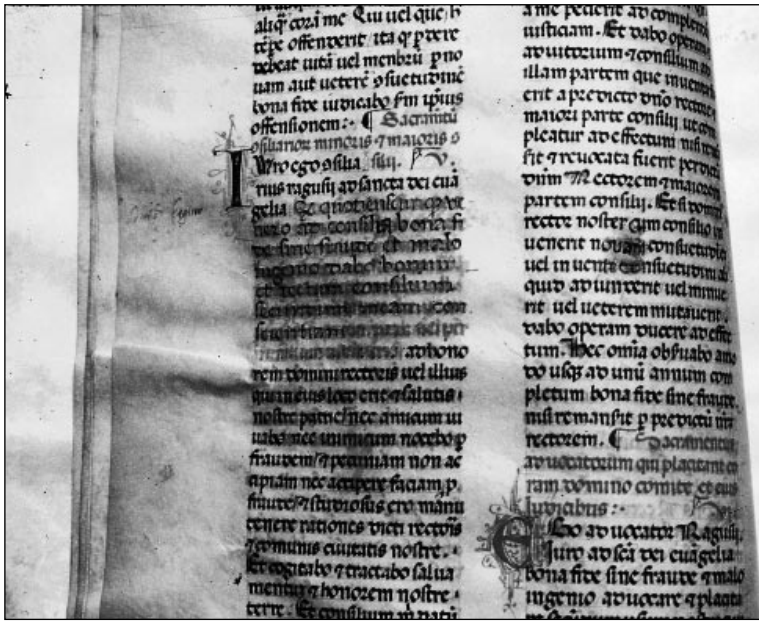 aliq͛ corā me Qui uel que, h
tēpe offenderit, ita q̇ p̱dere
debeat uitā uel menbrū p̱ no
uam aut ueterē ꝯsuetudinē
bona fide iudicabo sm̄ ipsius
offensionem:· ¶ Sacramētū
ꝯsiliarior minoris ⁊ maioris ꝯ
IVro ego ꝯsilia silii.
rius ragusii ad sancta dei euā
gelia Et quotienscunque
ad consiliū bona fi
de sine fraude et malo
ingenio dabo bonum
et rectum consilium
secundum meam con
scientiam
ad hono
rem domini rectoris uel illius
qui in eius loco erit ⁊ salutis
nostre patrie, nec amicum iu
uabo nec inimicum nocebo p̱
fraudem, ⁊ pecuniam non ac
cipiam nec accipere faciam p̱
fraudē, ⁊ studiosus ero manu
tenere rationes dicti rectoris
⁊ comunis ciuitatis nostre.
Et cogitabo ⁊ tractabo salua
mentū ⁊ honorem nostre
terre. Et consilium m̄
a me petierit ad complen
iusticiam. Et dabo operam
adiutorium ⁊ consilium ad
illam partem que inuenta
erit a predicto dn̄o rectore
maiori parte consilii ut com
pleatur ad effectum nisi
sit ⁊ reuocata fuerit per dictū
dn̄m Rectorem ⁊ maiorem
partem consilij. Et si domin
rector noster cum consilio in
uenerit nouam consuetudinē
uel in uenta consuetudini ali
quid adiunxerit uel minue
rit uel ueterem mutauerit.
dabo operam ducere ad effec
tum. Hec omia obseruabo amo
do usq; ad unū annum com
pletum bona fide sine fraude.
nisi remansit p̱ predictū
rectorem. ¶ Sacramentum
aduocatorum qui placitant co
ram domino comite et eius
Iudicibus:·
EGo aduocator Ragusii.
Iuro ad scā dei euāgelia
bona fide sine fraude ⁊ malo
ingenio aduocare ⁊ placita